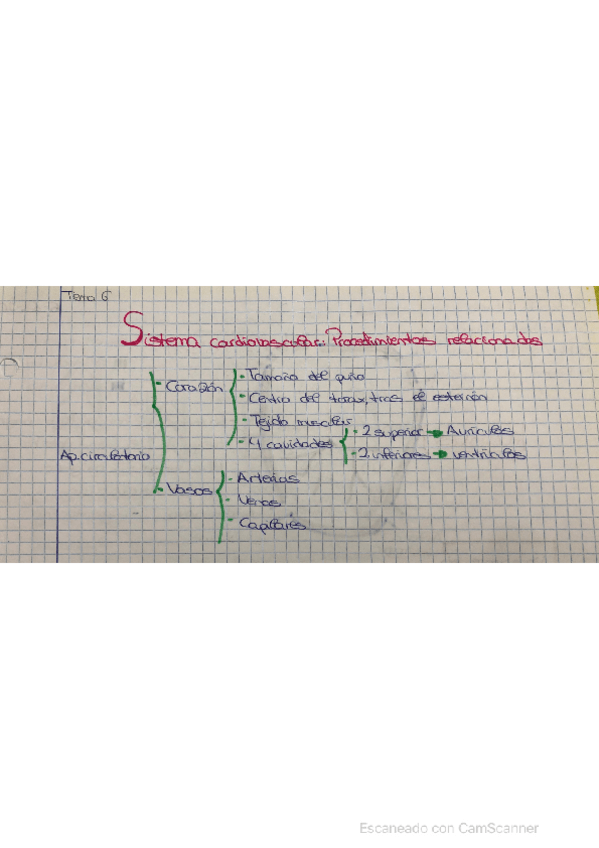 Tema 6
Sistema cardiovascular. Procedimientos relacionados
- Corazón
- Tamaño del puño
- Centro del torax, tras el esternón
- Tejido muscular
- 4 cavidades
- 2 superior → Aurículas
- 2 inferiores → ventrículos
Ap. circulatorio
- Vasos
- Arterias
- Venas
- Capilares
Escaneado con CamScanner